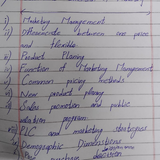 i) Marketing Management
ii) Differentiate between one price
and flexible
iii) Product Planing
iv) Function of Marketing Management
v) Common pricing methods
vi) New product plang
vii) Sales promotion and public
relation program
viii) PLC and marketing strategies
ix) Demographic Dimentions
x) Purchase decision